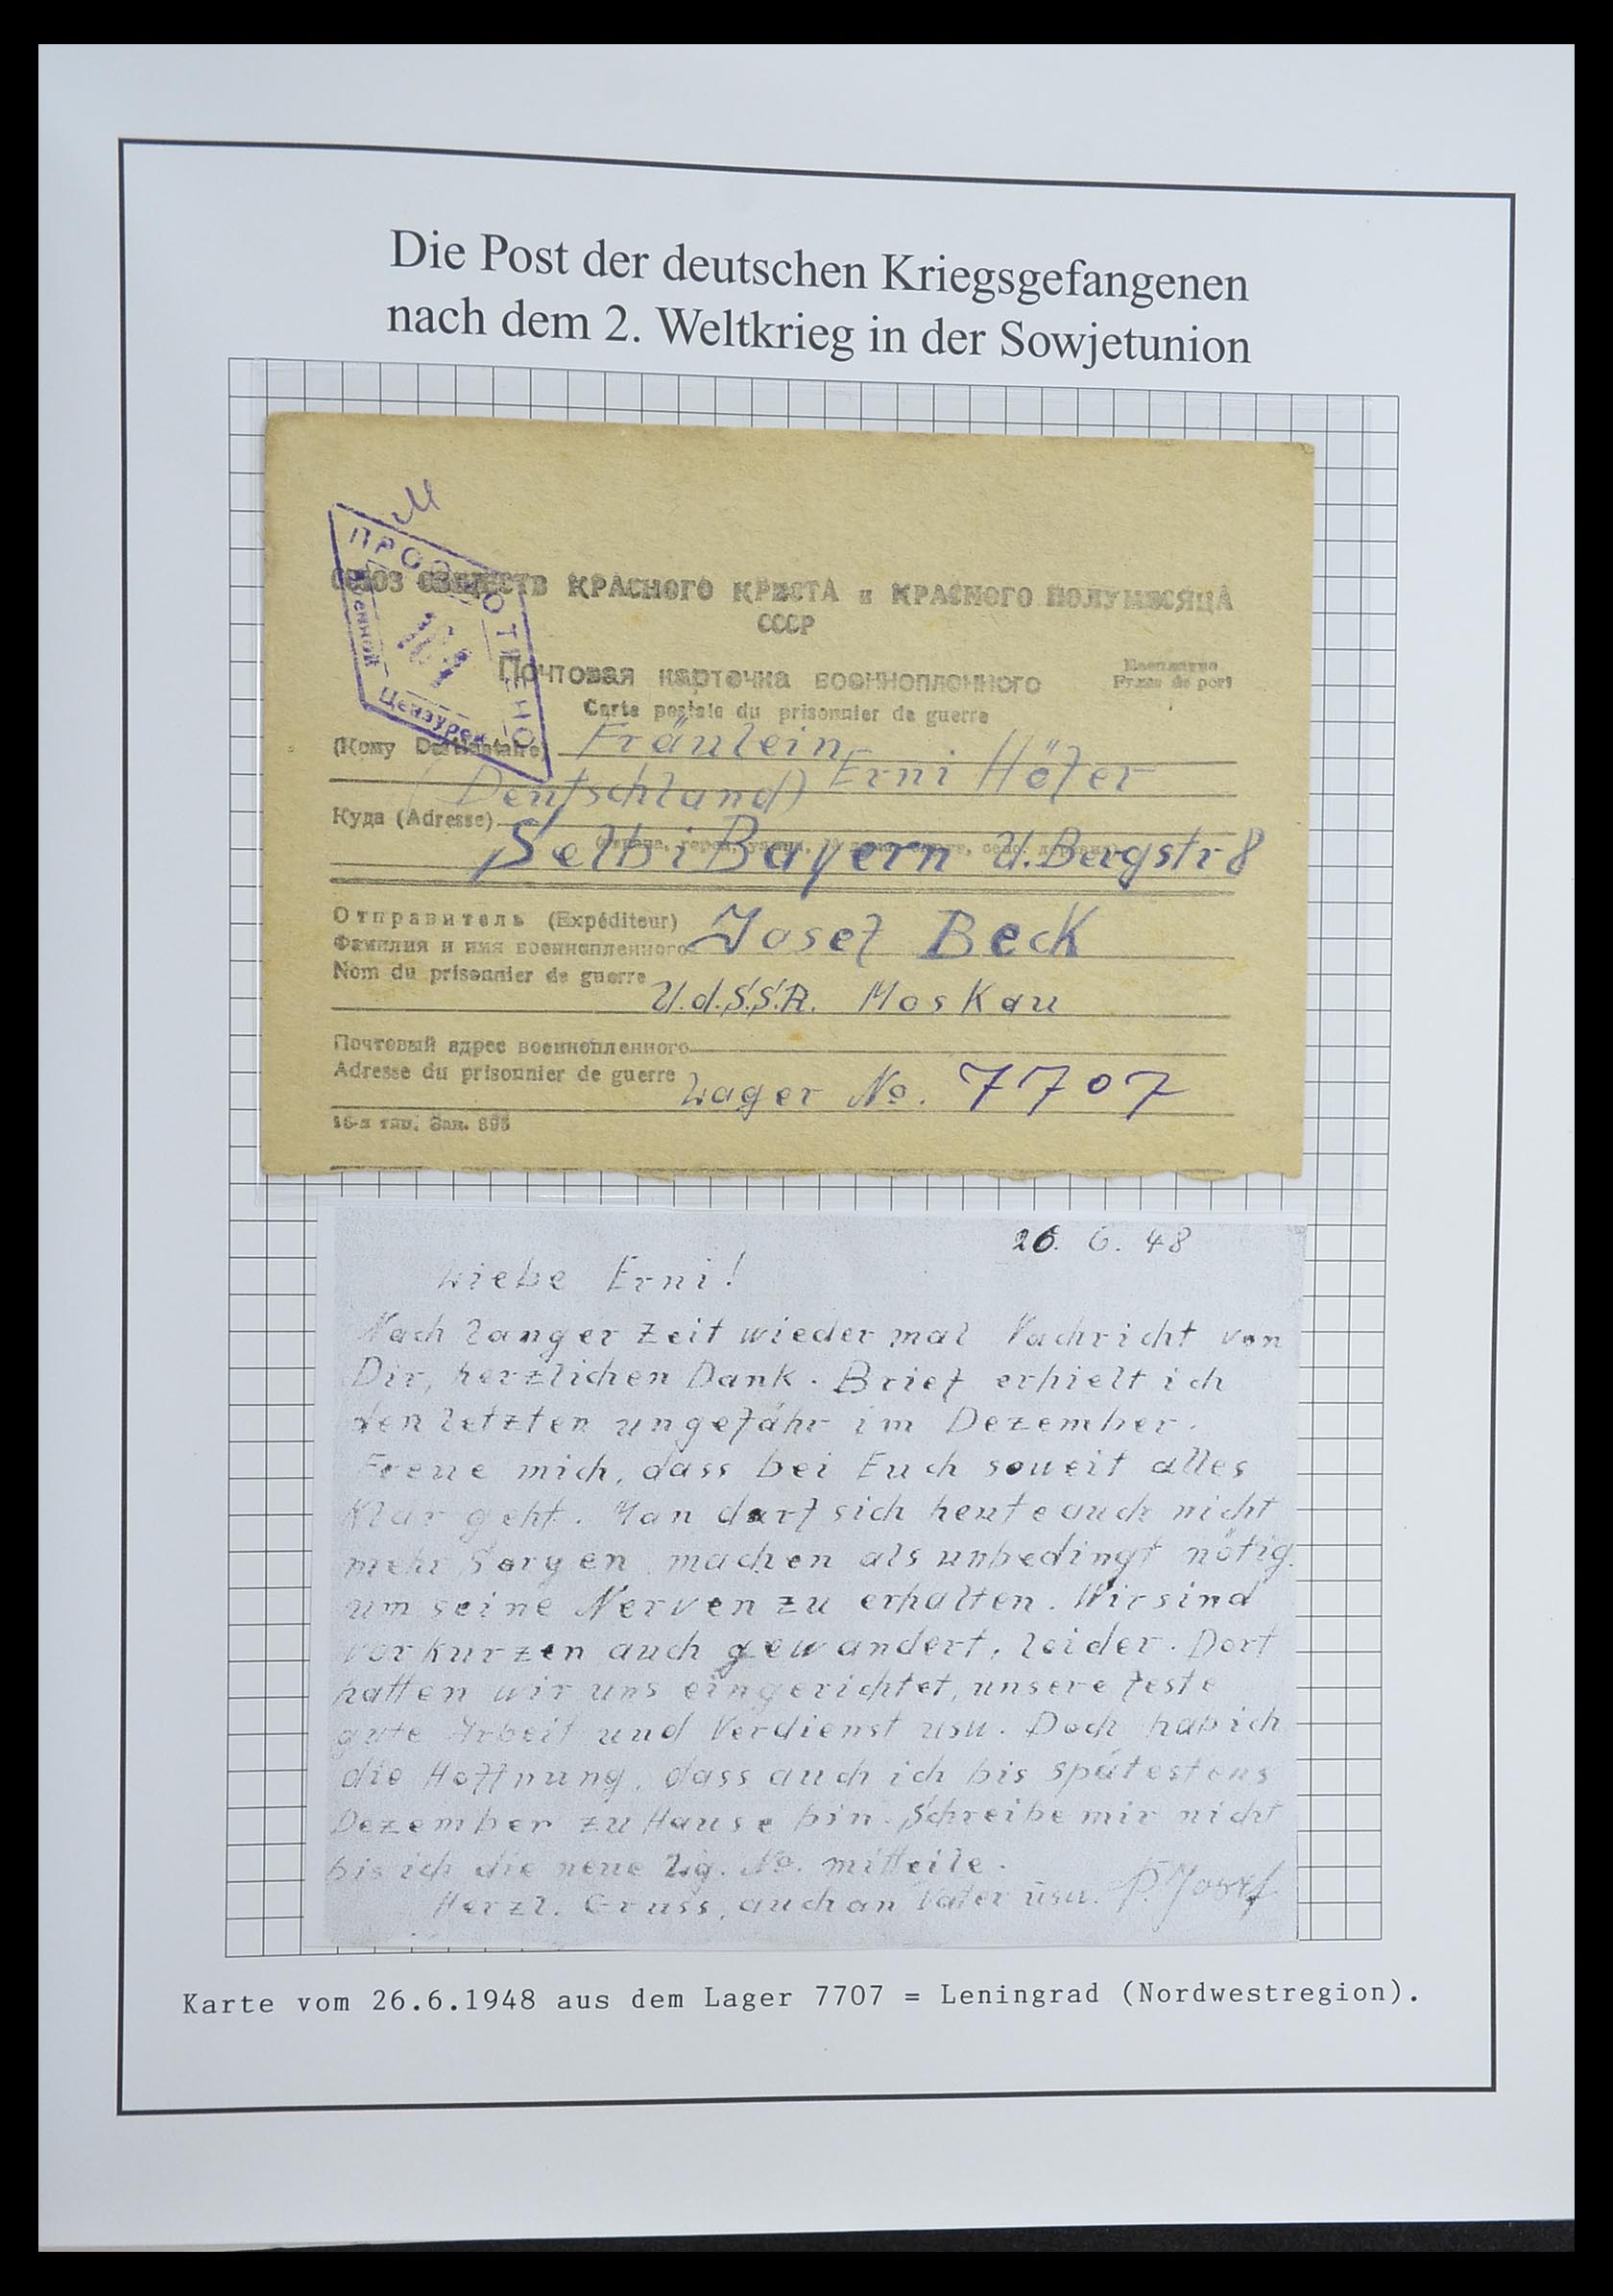 Die Post der deutschen Kriegsgefangenen
nach dem 2. Weltkrieg in der Sowjetunion
ПРОСМОТРЕНО
Военной
Цензурой
СОЮЗ ОБЩЕСТВ КРАСНОГО КРЕСТА и КРАСНОГО ПОЛУМЕСЯЦА
СССР
Почтовая карточка военнопленного
Carte postale du prisonnier de guerre
Бесплатно
Franc de port
(Кому Destinataire) Fräulein Erni Höfer
(Deutschland)
Куда (Adresse)
Selb i Bayern U. Bergstr 8
Отправитель (Expéditeur)
Фамилия и имя военнопленного Josef Beck
Nom du prisonnier de guerre
U.d.S.S.R. Moskau
Почтовый адрес военнопленного
Adresse du prisonnier de guerre Lager No. 7707
16-я тип. Зак.
26. 6. 48
Liebe Erni!
Nach langer Zeit wieder mal Nachricht von
Dir, herzlichen Dank. Brief erhielt ich
den letzten ungefähr im Dezember.
Freue mich, dass bei Euch soweit alles
Klar geht. Man darf sich heute auch nicht
mehr Sorgen machen als unbedingt nötig
um seine Nerven zu erhalten. Wir sind
vor kurzen auch gewandert, leider. Dort
hatten wir uns eingerichtet, unsere feste
gute Arbeit und Verdienst usw. Doch hab ich
die Hoffnung, dass auch ich bis spätestens
Dezember zu Hause bin. Schreibe mir nicht
bis ich die neue Lg. No. mitteile.
Herzl. Gruss, auch an Vater usw. Josef
Karte vom 26.6.1948 aus dem Lager 7707 = Leningrad (Nordwestregion).